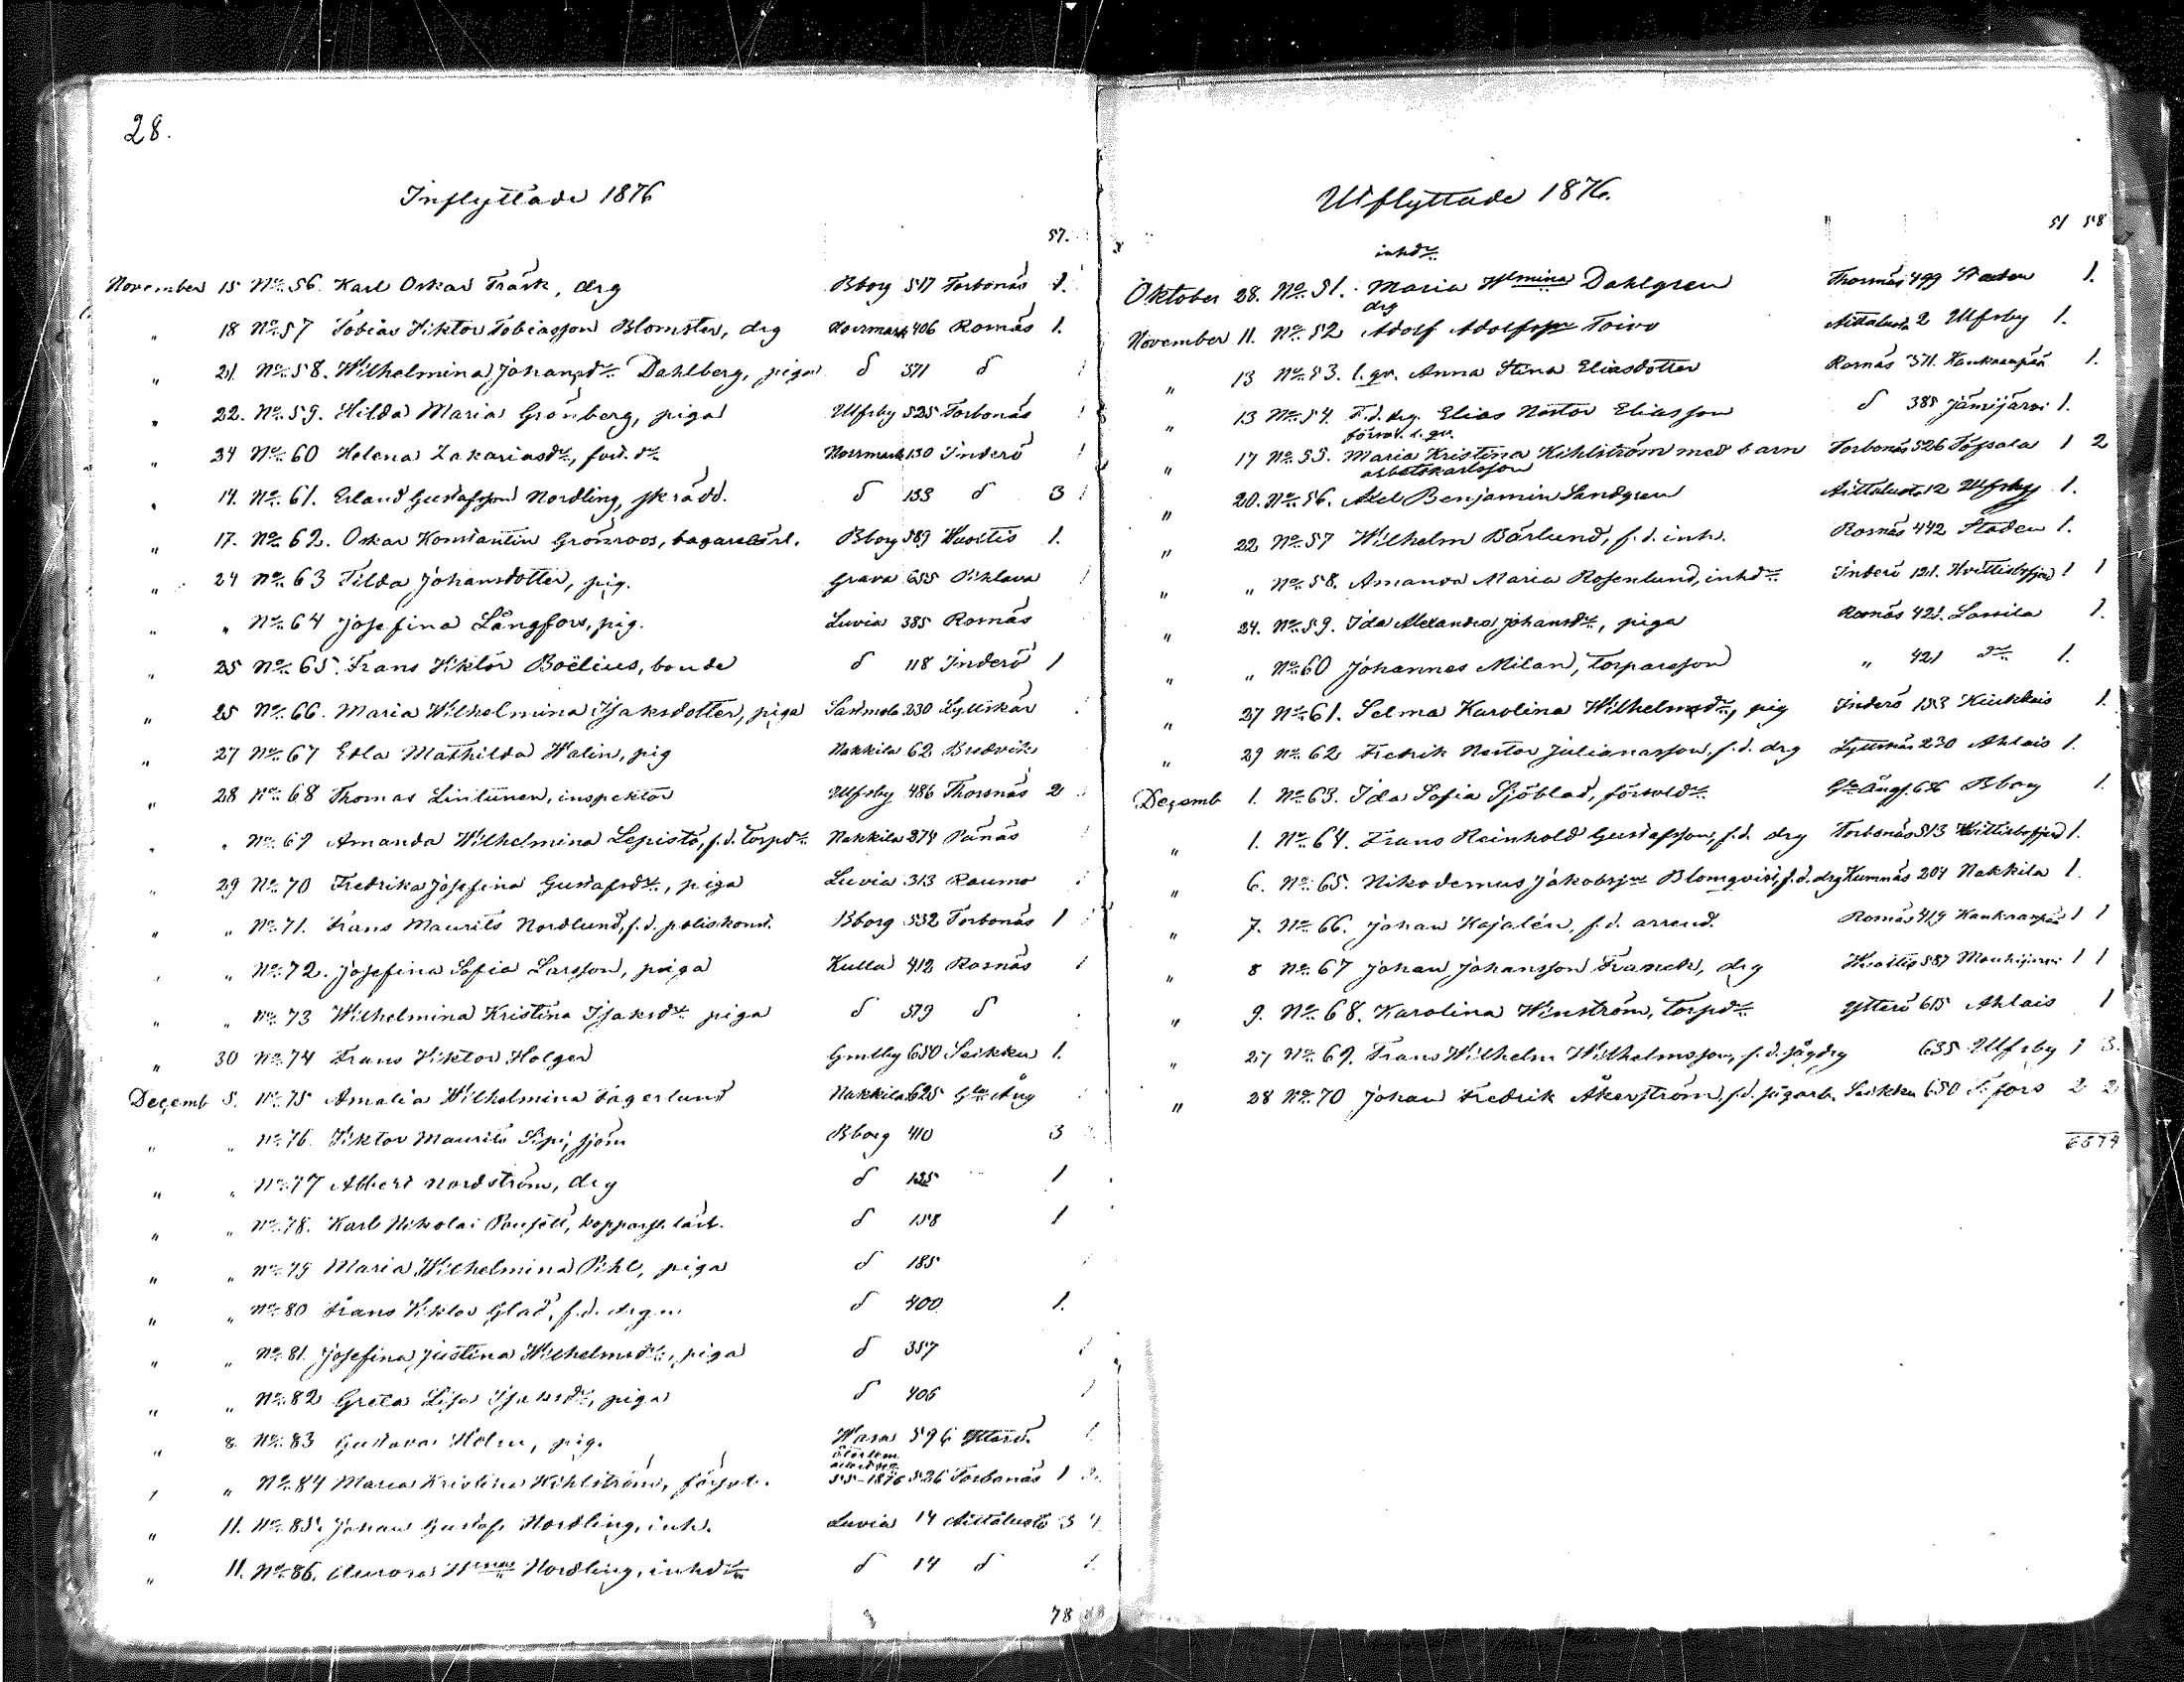 28.
Inflyttade 1876
57.
November 15 No 56. Karl Oskar Träsk, drg Bborg 517 Torbonäs 1.
" 18 No 57 Tobias Wiktor Tobiasson Blomster, drg Norrmark 406 Rosnäs 1.
" 21. No 58. Wilhelmina Johansdr Dahlberg, piga d 371 d 1
" 22. No 59. Hilda Maria Grönberg, piga Ulfsby 525 Torbonäs 1
" 24 No 60 Helena Zakariasdr, Norrmark 130 Inderö 1
" 14. No 61. Erland Gustafsson Nordling, skrädd. d 133 d 3 1
" 17. No 62. Oskar Konstantin Grönroos, bagarelärl. Bborg 589 Hvoitis 1.
" 24 No 63 Tilda Johansdotter, pig. Grava 655 Pihlava 1
" " No 64 Josefina Långfors, pig. Luvia 385 Rosnäs
" 25 No 65. Frans Wiktor Boëlius, bonde d 118 Inderö 1
" 25 No 66. Maria Wilhelmina Isaksdotter, piga Sastmola 230 Lyttskär
" 27 No 67 Edla Mathilda Walin, pig Nakkila 62 Bredvik
" 28 No 68 Thomas Lintunen, inspektor Ulfsby 486 Thorsnäs 2
" " No 69 Amanda Wilhelmina Lepistö, f.d. torpdr Nakkila 274 Pänäs
" 29 No 70 Fredrika Josefina Gustafsdr, piga Luvia 313 Raumo
" " No 71. Frans Maurits Nordlund, f.d. poliskonst. Bborg 532 Torbonäs 1
" " No 72. Josefina Sofia Larsson, piga Kulla 412 Rosnäs 1
" " No 73 Wilhelmina Kristina Isaksdr piga d 379 d
" 30 No 74 Frans Wiktor Holger Gmlby 650 Seikku 1.
Decemb 5. No 75 Amalia Wilhelmina Fagerlund Nakkila 625 Gla Äng
" " No 76. Wiktor Maurits Sipi, sjöm Bborg 410 3
" " No 77 Albert Nordström, drg d 125 1
" " No 78. Karl Nikolai kopparsl. lärl. d 158 1
" " No 79 Maria Wilhelmina Pihl, piga d 185
" " No 80 Frans Wiktor Glad, f.d. drg d 400 1.
" " No 81. Josefina Justina Wilhelmsdr, piga d 357 1
" " No 82 Greta Lisa Isaksdr, piga d 406 1
" 8. No 83 Gustava Holm, pig. Wasa 596 Ytterö. 1
" " No 84 Maria Kristina Kihlström, 55-1876 526 Torbonäs 1 2.
" 11. No 85. Johan Gustaf Nordling, inh. Luvia 14 Aittaluoto 3 4
" 11. No 86. Aurora Nordling, inhdr d 14 d 1.
78
Utflyttade 1876.
51 58
inhdr
Oktober 28. No 51. Maria Wlmina Dahlgren Thorsnäs 499 Staden 1.
drg
November 11. No 52 Adolf Adolfsson Toivo Aittaluoto 2 Ulfsby 1.
" 13 No 53. l. qv. Anna Stina Eliasdotter Rosnäs 371. Kankaanpää 1.
" 13 No 54. F.d. drg. Elias Nestor Eliasson d 385 Jämijärvi 1.
försv. l. qv.
" 17 No 55. Maria Kristina Kihlström med barn Torbonäs 526 Töfsala 1 2
arbetskarlsson
" 20. No 56. Axel Benjamin Sandgren Aittaluoto 12 Ulfsby 1.
" 22 No 57 Wilhelm Bärlund, f.d. inh. Rosnäs 442 Staden 1.
" " No 58. Amanda Maria Rosenlund, inhdr Inderö 121. Hvittisbofjerd 1 1
" 24. No 59. Ida Alexandra Johansdr, piga Rosnäs 421. Lassila 1.
" " No 60 Johannes Milan, torparesson " 421 dr 1.
" 27 No 61. Selma Karolina Wilhelmsdr, pig Inderö 133 Kiukkais 1.
" 29 No 62 Fredrik Nestor Julianasson, f.d. drg Lyttskär 230 Ahlais 1.
Decemb 1. No 63. Ida Sofia Sjöblad, Gla Ängs. 626 Bborg 1.
" 1. No 64. Frans Reinhold Gustafsson, f.d. drg Torbonäs 513 Hvittisbofjerd 1.
" 6. No 65. Nikodemus Jakobsson Blomqvist, f.d. drg Kumnäs 204 Nakkila 1.
" 7. No 66. Johan Kajalén, f.d. arrend. Rosnäs 419 Kankaanpää 1 1
" 8 No 67 Johan Johansson Franck, drg Hvoitis 587 Mouhijärvi 1 1
" 9. No 68. Karolina Winström, torpdr Ytterö 615 Ahlais 1
" 27 No 69. Frans Wilhelm Wilhelmsson, f.d. sågdrg 635 Ulfsby 1 3.
" 28 No 70 Johan Fredrik Åkerström, f.d. sågarb. Seikku 650 T:fors 2 2
6874